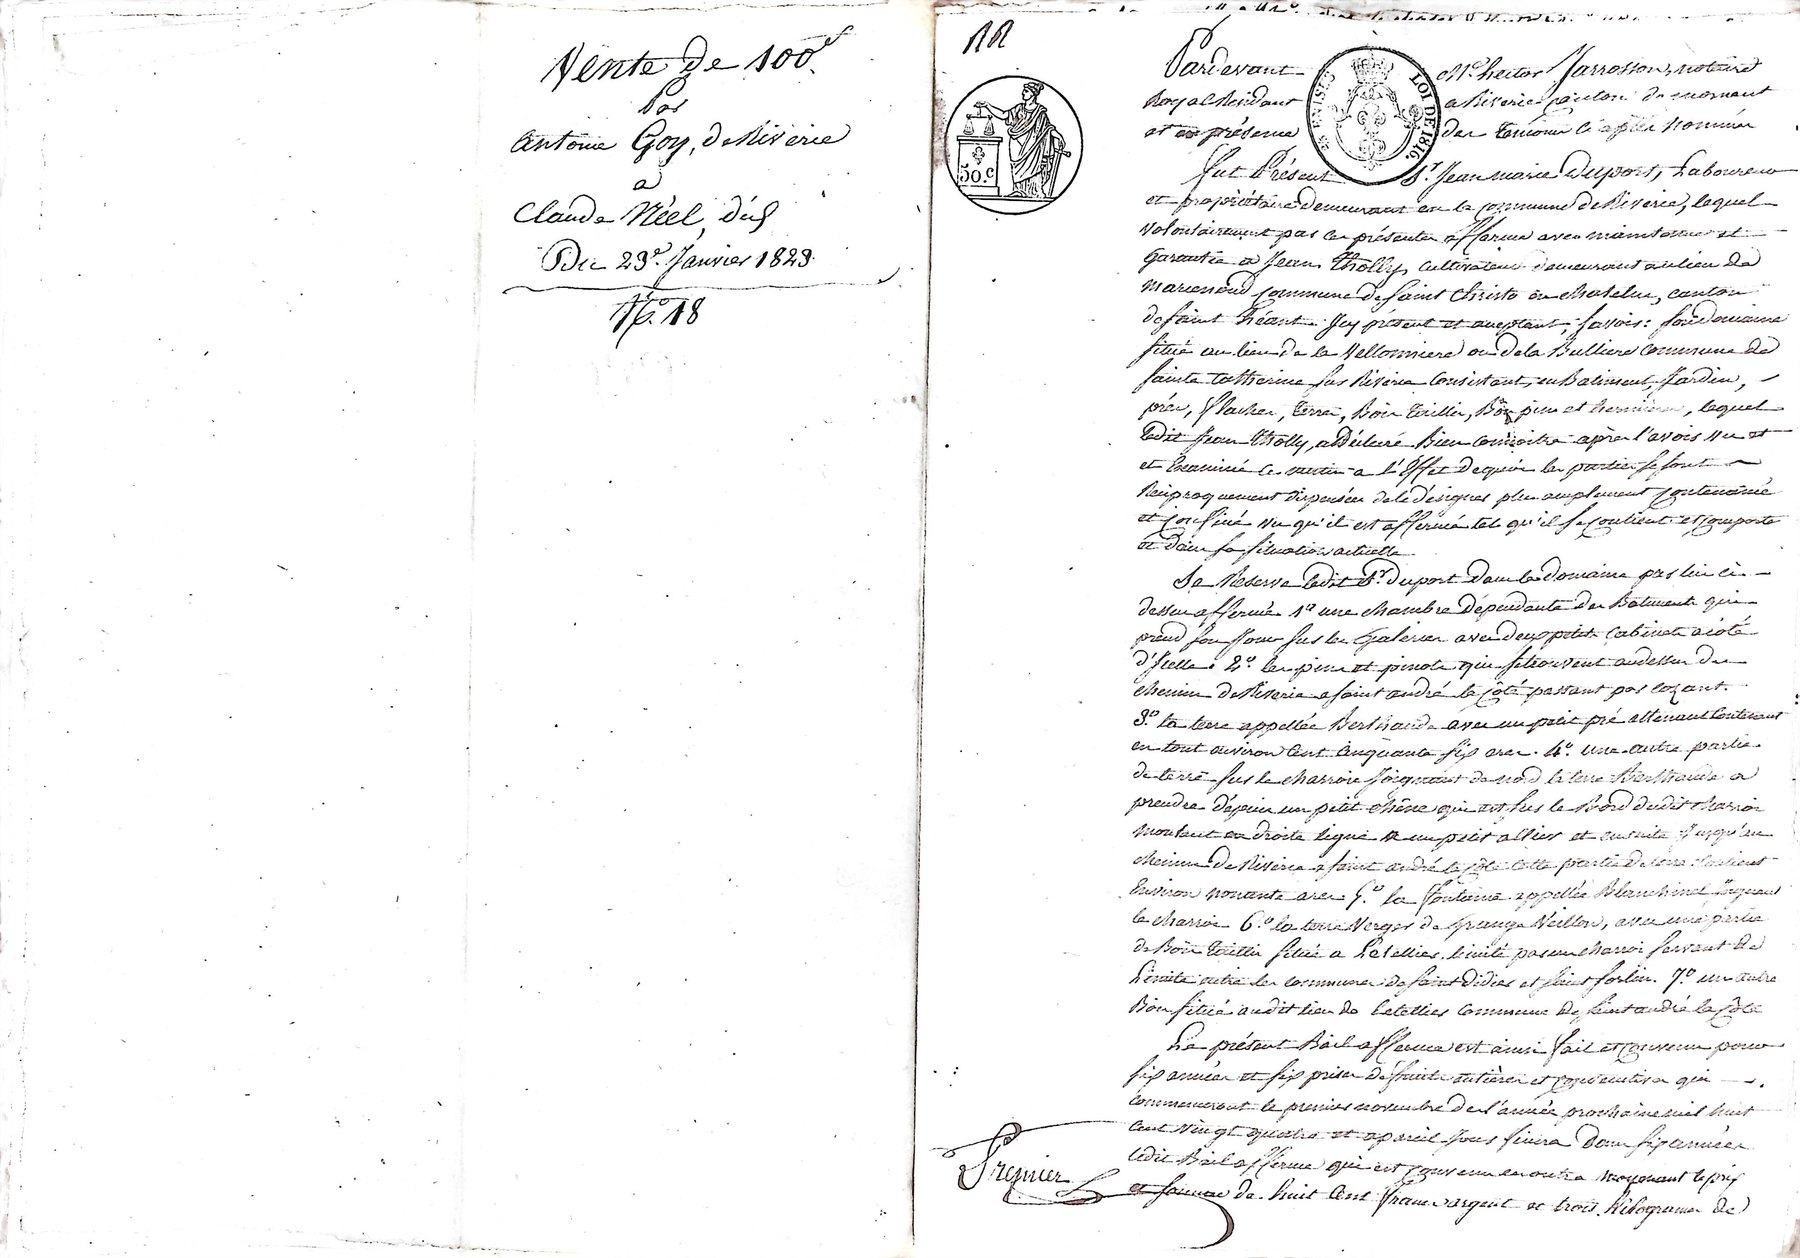 Vente de 100f.
Par
Antoine Goy, de Riverie
a
Claude Néel, dud.
Du 29e. Janvier 1823.
No. 18
50.c
LOI DE 1816.
Pardevant Me. hector Jarrosson, notaire
Royal Residant a Riverie canton de mornant
et en présence des temoins ci après nommés
fut Présent Sr. Jean marie Duport, Laboureur
et propriétaire demeurant en la commune de Riverie, lequel
volontairement par ces présentes afferme avec maintenue et
Garantie a Jean Tholly, cultivateur demeurant au lieu de
commune de Saint Christo en chatelus, canton
de Saint héant. Icy présent et acceptant, savoir: son domaine
situé au lieu de la Vellonniere ou de la Bulliere commune de
Sainte Catherine sur Riverie Consistant, en Batiment, Jardin,
prés, flaches, terre, Bois Taillis, Bois pins et hermures, lequel
ledit Jean Tholly, a Déclaré Bien connoitre après l'avoir vu et
et Examiné ce matin a l'Effet de quoi les parties se sont
Reciproquement dispensées de le désigner plus amplement contenance
et confiné vu qu'il est affermé tel qu'il se contient et comporte
et dans sa situation actuelle
Se Reserve ledit Sr. Duport dans le domaine par lui ci-
dessus affermé 1o une chambre dépendante des Batiments qui
prend son Jour sur les Galeries avec deux petits Cabinets a côté
d'Icelle. 2o. les pins et pinots qui se trouvent au dessus du
chemin de Riverie a Saint andré la Côté passant par Cozant.
3.o la terre appellée Berthaude avec un petit pré attenant Contenant
en tout environ Cent Cinquante six ares. 4o. une autre partie
de terre sur le charroir Joignant de nord la terre Berthaude a
prendre depuis un petit chêne qui est sur le Bord dudit charroir
montant en droite ligne a un petit allier et ensuite jusqu'au
chemin de Riverie a Saint andré la Côte cette partie de terre Contient
Environ nonante ares 5.o la fontaine appellée Blanchinel Joignant
le charroir 6.o la terre Verger de Grange Veillon, avec une partie
de Bois Taillis située a Letellier, limité par un charroir servant de
Limite entre les communes de Saint Didier et Saint Sorlin. 7.o un autre
Bois situé audit lieu de Letellier commune de Saint andré la Côte
Le présent Bail a ferme est ainsi fait et convenu pour
six années et six prises de fruits entières et consécutives qui
commenceront le premier novembre de l'année prochaine mil huit
cent vingt quatre et a pareil Jour finira dans six années
ledit Bail a ferme qui est convenu en outre moyennant le prix
et somme de huit Cent francs argent et trois Kilogrames de
Premier